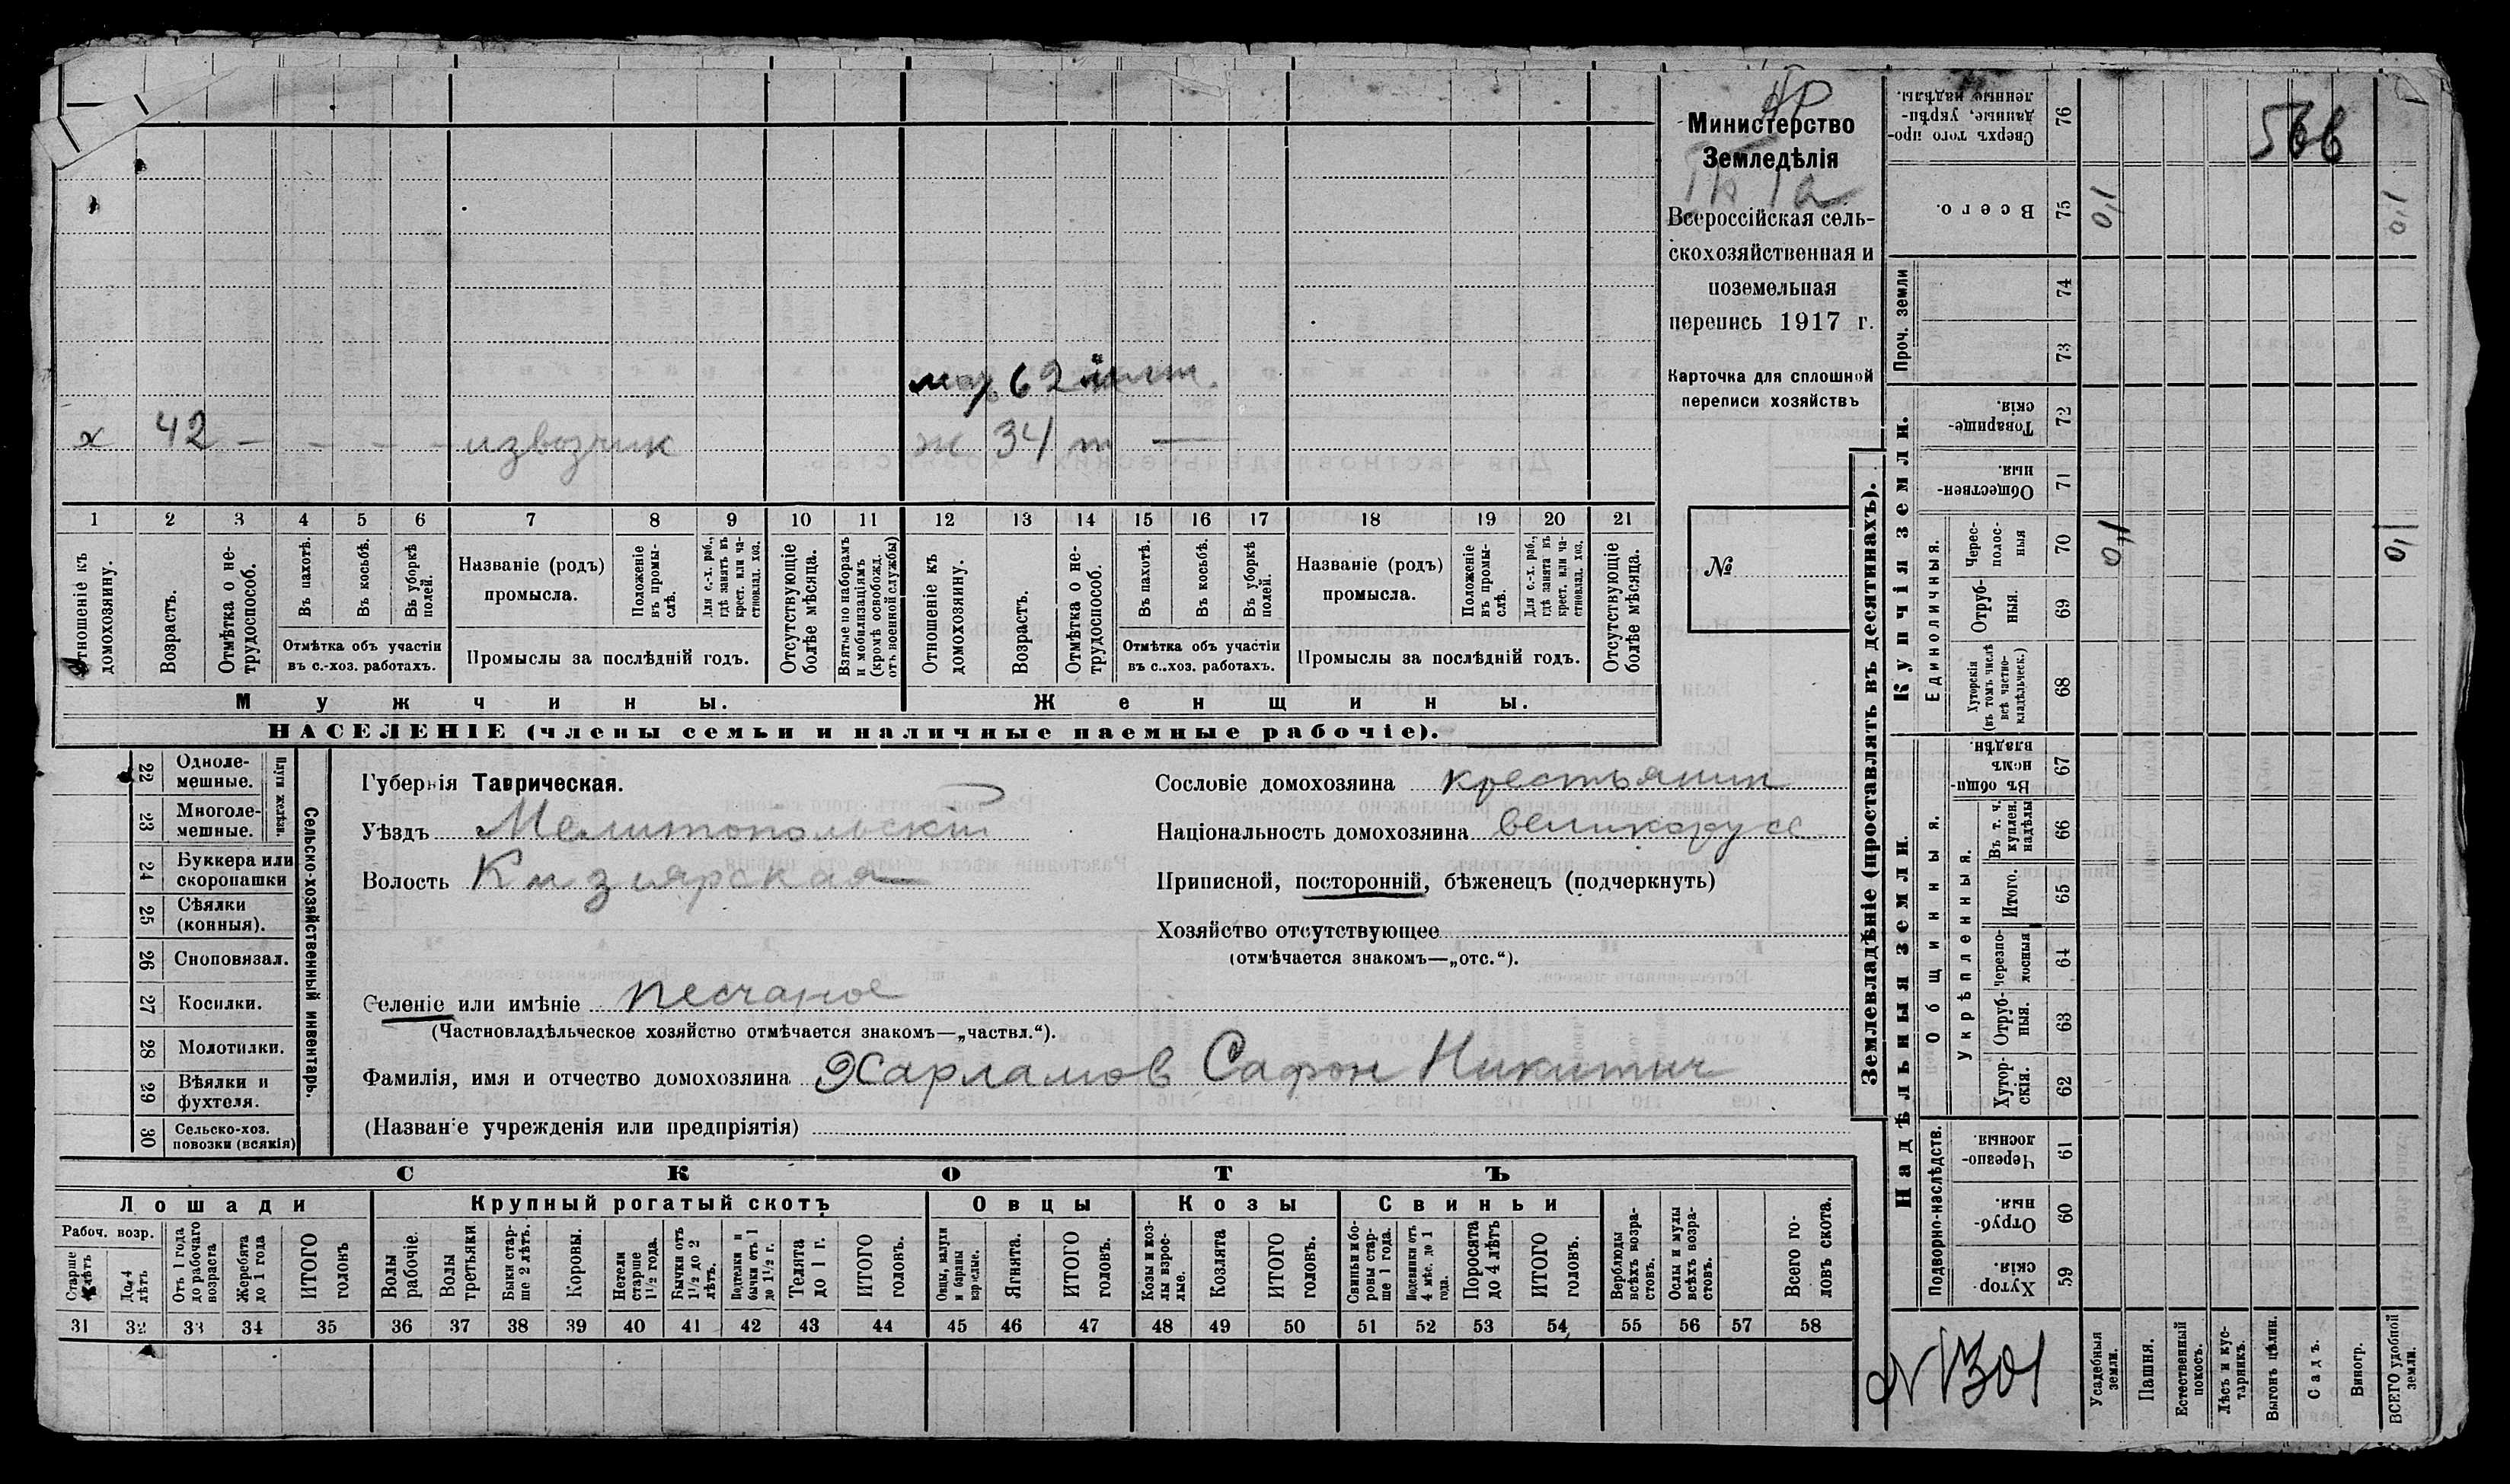 Министерство
Земледѣлія
Всероссійская сель-
скохозяйственная и
поземельная
перепись 1917 г.
Карточка для сплошной
переписи хозяйствъ
№
62
х 42 — — — — извозчик ж 34 т —
1 2 3 4 5 6 7 8 9 10 11 12 13 14 15 16 17 18 19 20 21
Отношеніе къ домохозяину.
Возрастъ.
Отмѣтка о не-трудоспособ.
Въ пахотѣ.
Въ косьбѣ.
Въ уборкѣ полей.
Отмѣтка объ участіи
въ с.-хоз. работахъ.
Названіе (родъ)
промысла.
Положеніе въ промы-слѣ.
Для с.-х. раб., гдѣ занятъ въ крест. или ча-стновлад. хоз.
Промыслы за послѣдній годъ.
Отсутствующіе болѣе мѣсяца.
Взятые по наборамъ и мобилизаціямъ (кромѣ освобожд. отъ военной службы)
Отношеніе къ домохозяину.
Возрастъ.
Отмѣтка о не-трудоспособ.
Въ пахотѣ.
Въ косьбѣ.
Въ уборкѣ полей.
Отмѣтка объ участіи
въ с.-хоз. работахъ.
Названіе (родъ)
промысла.
Положеніе въ промы-слѣ.
Для с.-х. раб., гдѣ занята въ крест. или ча-стновлад. хоз.
Промыслы за послѣдній годъ.
Отсутствующіе болѣе мѣсяца.
Мужчины. Женщины.
НАСЕЛЕНІЕ (члены семьи и наличные наемные рабочіе).
Сельско-хозяйственный инвентарь.
Плуги желѣзн.
22 Одноле-мешные.
23 Многоле-мешные.
24 Буккера или скоропашки
25 Сѣялки (конныя).
26 Сноповязал.
27 Косилки.
28 Молотилки.
29 Вѣялки и фухтеля.
30 Сельско-хоз. повозки (всякія)
Губернія Таврическая.
Уѣздъ Мелитопольскій
Волость Кизиярская
Сословіе домохозяина крестьянин
Національность домохозяина великорусс
Приписной, посторонній, бѣженецъ (подчеркнуть)
Хозяйство отсутствующее
(отмѣчается знакомъ—„отс.“).
Селеніе или имѣніе Песчаное
(Частновладѣльческое хозяйство отмѣчается знакомъ—„частвл.“).
Фамилія, имя и отчество домохозяина Харламов Сафон Никитич
(Названіе учрежденія или предпріятія)
СКОТЪ
Лошади Крупный рогатый скотъ Овцы Козы Свиньи
Рабоч. возр.
Старше 4 лѣтъ
До 4 лѣтъ
Отъ 1 года до рабочаго возраста
Жеребята до 1 года
ИТОГО головъ
Волы рабочіе.
Волы третьяки
Быки стар-ше 2 лѣтъ.
Коровы.
Нетели старше 1½ года.
Бычки отъ 1½ до 2 лѣтъ.
Подтелки и бычки отъ 1 до 1½ г.
Телята до 1 г.
ИТОГО головъ.
Овцы, валухи и бараны взрослые.
Ягнята.
ИТОГО головъ.
Козы и коз-лы взрос-лые.
Козлята
ИТОГО головъ.
Свиньи и бо-ровы стар-ше 1 года.
Подсвинки отъ 4 мѣс. до 1 года.
Поросята до 4 лѣтъ
ИТОГО головъ.
Верблюды всѣхъ возра-стовъ.
Ослы и мулы всѣхъ возра-стовъ.
Всего го-ловъ скота.
31 32 33 34 35 36 37 38 39 40 41 42 43 44 45 46 47 48 49 50 51 52 53 54 55 56 57 58
Землевладѣніе (проставлять въ десятинахъ).
Надѣльныя земли.
Купчія земли.
Проч. земли
Подворно-наслѣдств.
Общинныя.
Укрѣпленныя.
Единоличныя.
Сверхъ того про-данные, укрѣп-ленные надѣлы. 76
566
Всего. 75
74
73
Товарище-скія. 72
Обществен-ныя. 71
Черес-полос-ныя 70
Отруб-ныя. 69
Хуторскія (въ томъ числѣ всѣ частно-владѣльческ.) 68
Въ общи-номъ владѣн. 67
Въ т. ч. куплен. надѣлы 66
Итого. 65
Черезпо-лосныя 64
Отруб-ныя. 63
Хутор-скія. 62
Черезпо-лосныя. 61
Отруб-ныя. 60
Хутор-скія. 59
Усадебныя земли.
Пашня.
Естественный покосъ.
Лѣсъ и кус-тарникъ.
Выгонъ цѣлин.
Садъ.
Виногр.
ВСЕГО удобной земли.